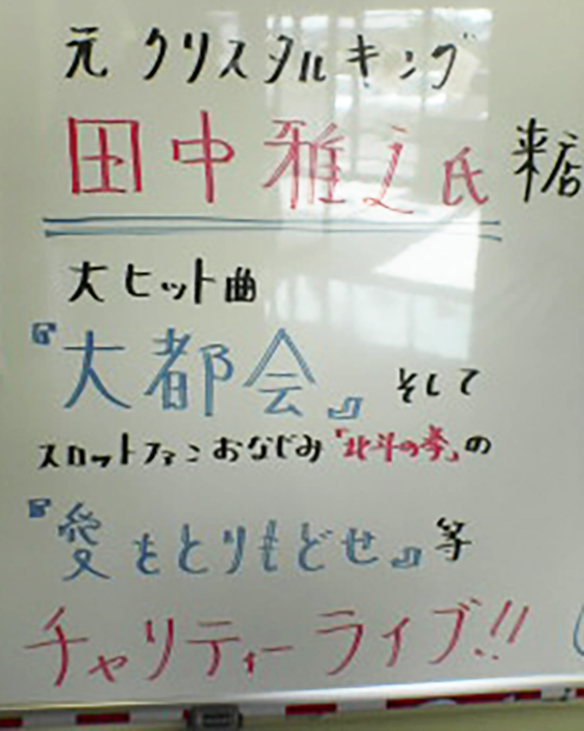 元クリスタルキング
田中雅之氏 来店
大ヒット曲
『大都会』そして
スロットファンおなじみ「北斗の拳」の
『愛をとりもどせ』等
チャリティーライブ!!